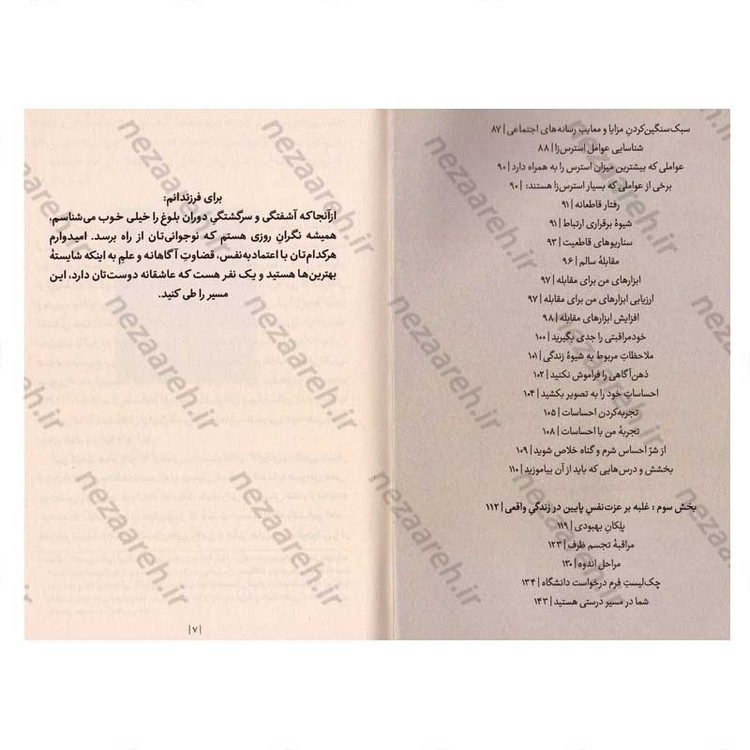 سبک‌سنگین‌کردنِ مزایا و معایب رسانه‌های اجتماعی | ۸۷
شناسایی عوامل استرس‌زا | ۸۸
عواملی که بیشترین میزان استرس را به همراه دارد | ۹۰
برخی از عواملی که بسیار استرس‌زا هستند: | ۹۰
رفتار قاطعانه | ۹۱
شیوهٔ برقراری ارتباط | ۹۱
سناریوهای قاطعیت | ۹۳
مقابلهٔ سالم | ۹۶
ابزارهای من برای مقابله | ۹۷
ارزیابی ابزارهای من برای مقابله | ۹۷
افزایش ابزارهای مقابله | ۹۸
خودمراقبتی را جدی بگیرید | ۱۰۰
ملاحظاتِ مربوط به شیوهٔ زندگی | ۱۰۱
ذهن‌آگاهی را فراموش نکنید | ۱۰۲
احساساتِ خود را به تصویر بکشید | ۱۰۴
تجربه‌کردن احساسات | ۱۰۵
تجربهٔ من با احساسات | ۱۰۸
از شرّ احساس شرم و گناه خلاص شوید | ۱۰۹
بخشش و درس‌هایی که باید از آن بیاموزید | ۱۱۰
بخش سوم : غلبه بر عزت‌نفسِ پایین در زندگیِ واقعی | ۱۱۲
پلکان بهبودی | ۱۱۹
مراقبهٔ تجسم ظرف | ۱۲۳
مراحل اندوه | ۱۳۰
چک‌لیستِ فرم درخواست دانشگاه | ۱۳۴
شما در مسیر درستی هستید | ۱۴۳
برای فرزندانم:
ازآنجاکه آشفتگی و سرگشتگیِ دوران بلوغ را خیلی خوب می‌شناسم،
همیشه نگرانِ روزی هستم که نوجوانی‌تان از راه برسد. امیدوارم
هرکدام‌تان با اعتمادبه‌نفس، قضاوتِ آگاهانه و علم به اینکه شایستهٔ
بهترین‌ها هستید و یک نفر هست که عاشقانه دوست‌تان دارد، این
مسیر را طی کنید.
| ۷ |
nezaareh.ir